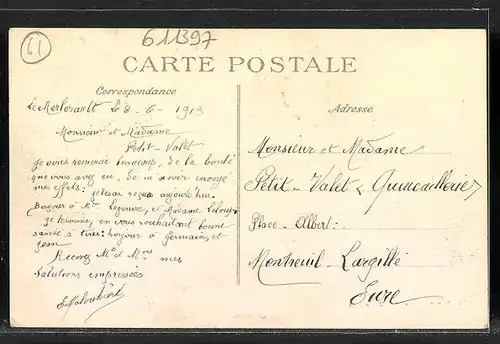 61
611397
CARTE POSTALE
Correspondance
Le Merlerault le 8-6-1913
Monsieur et Madame
Petit-Valet
Je vous remercie beaucoup, de la bonté
que vous avez eu, de m'avoir envoyé
mes effets: je les ai reçus aujourd'hui.
Bonjour à Mme et Madame
je termine, en vous souhaitant bonne
santé à tous: bonjour à Germaine, et
Jean
Recevez Mr et Mme mes
Salutions empressées
Adresse
Monsieur et Madame
Petit-Valet (Quincaillerie)
Place-Albert:
Montreuil-Largillé
Eure